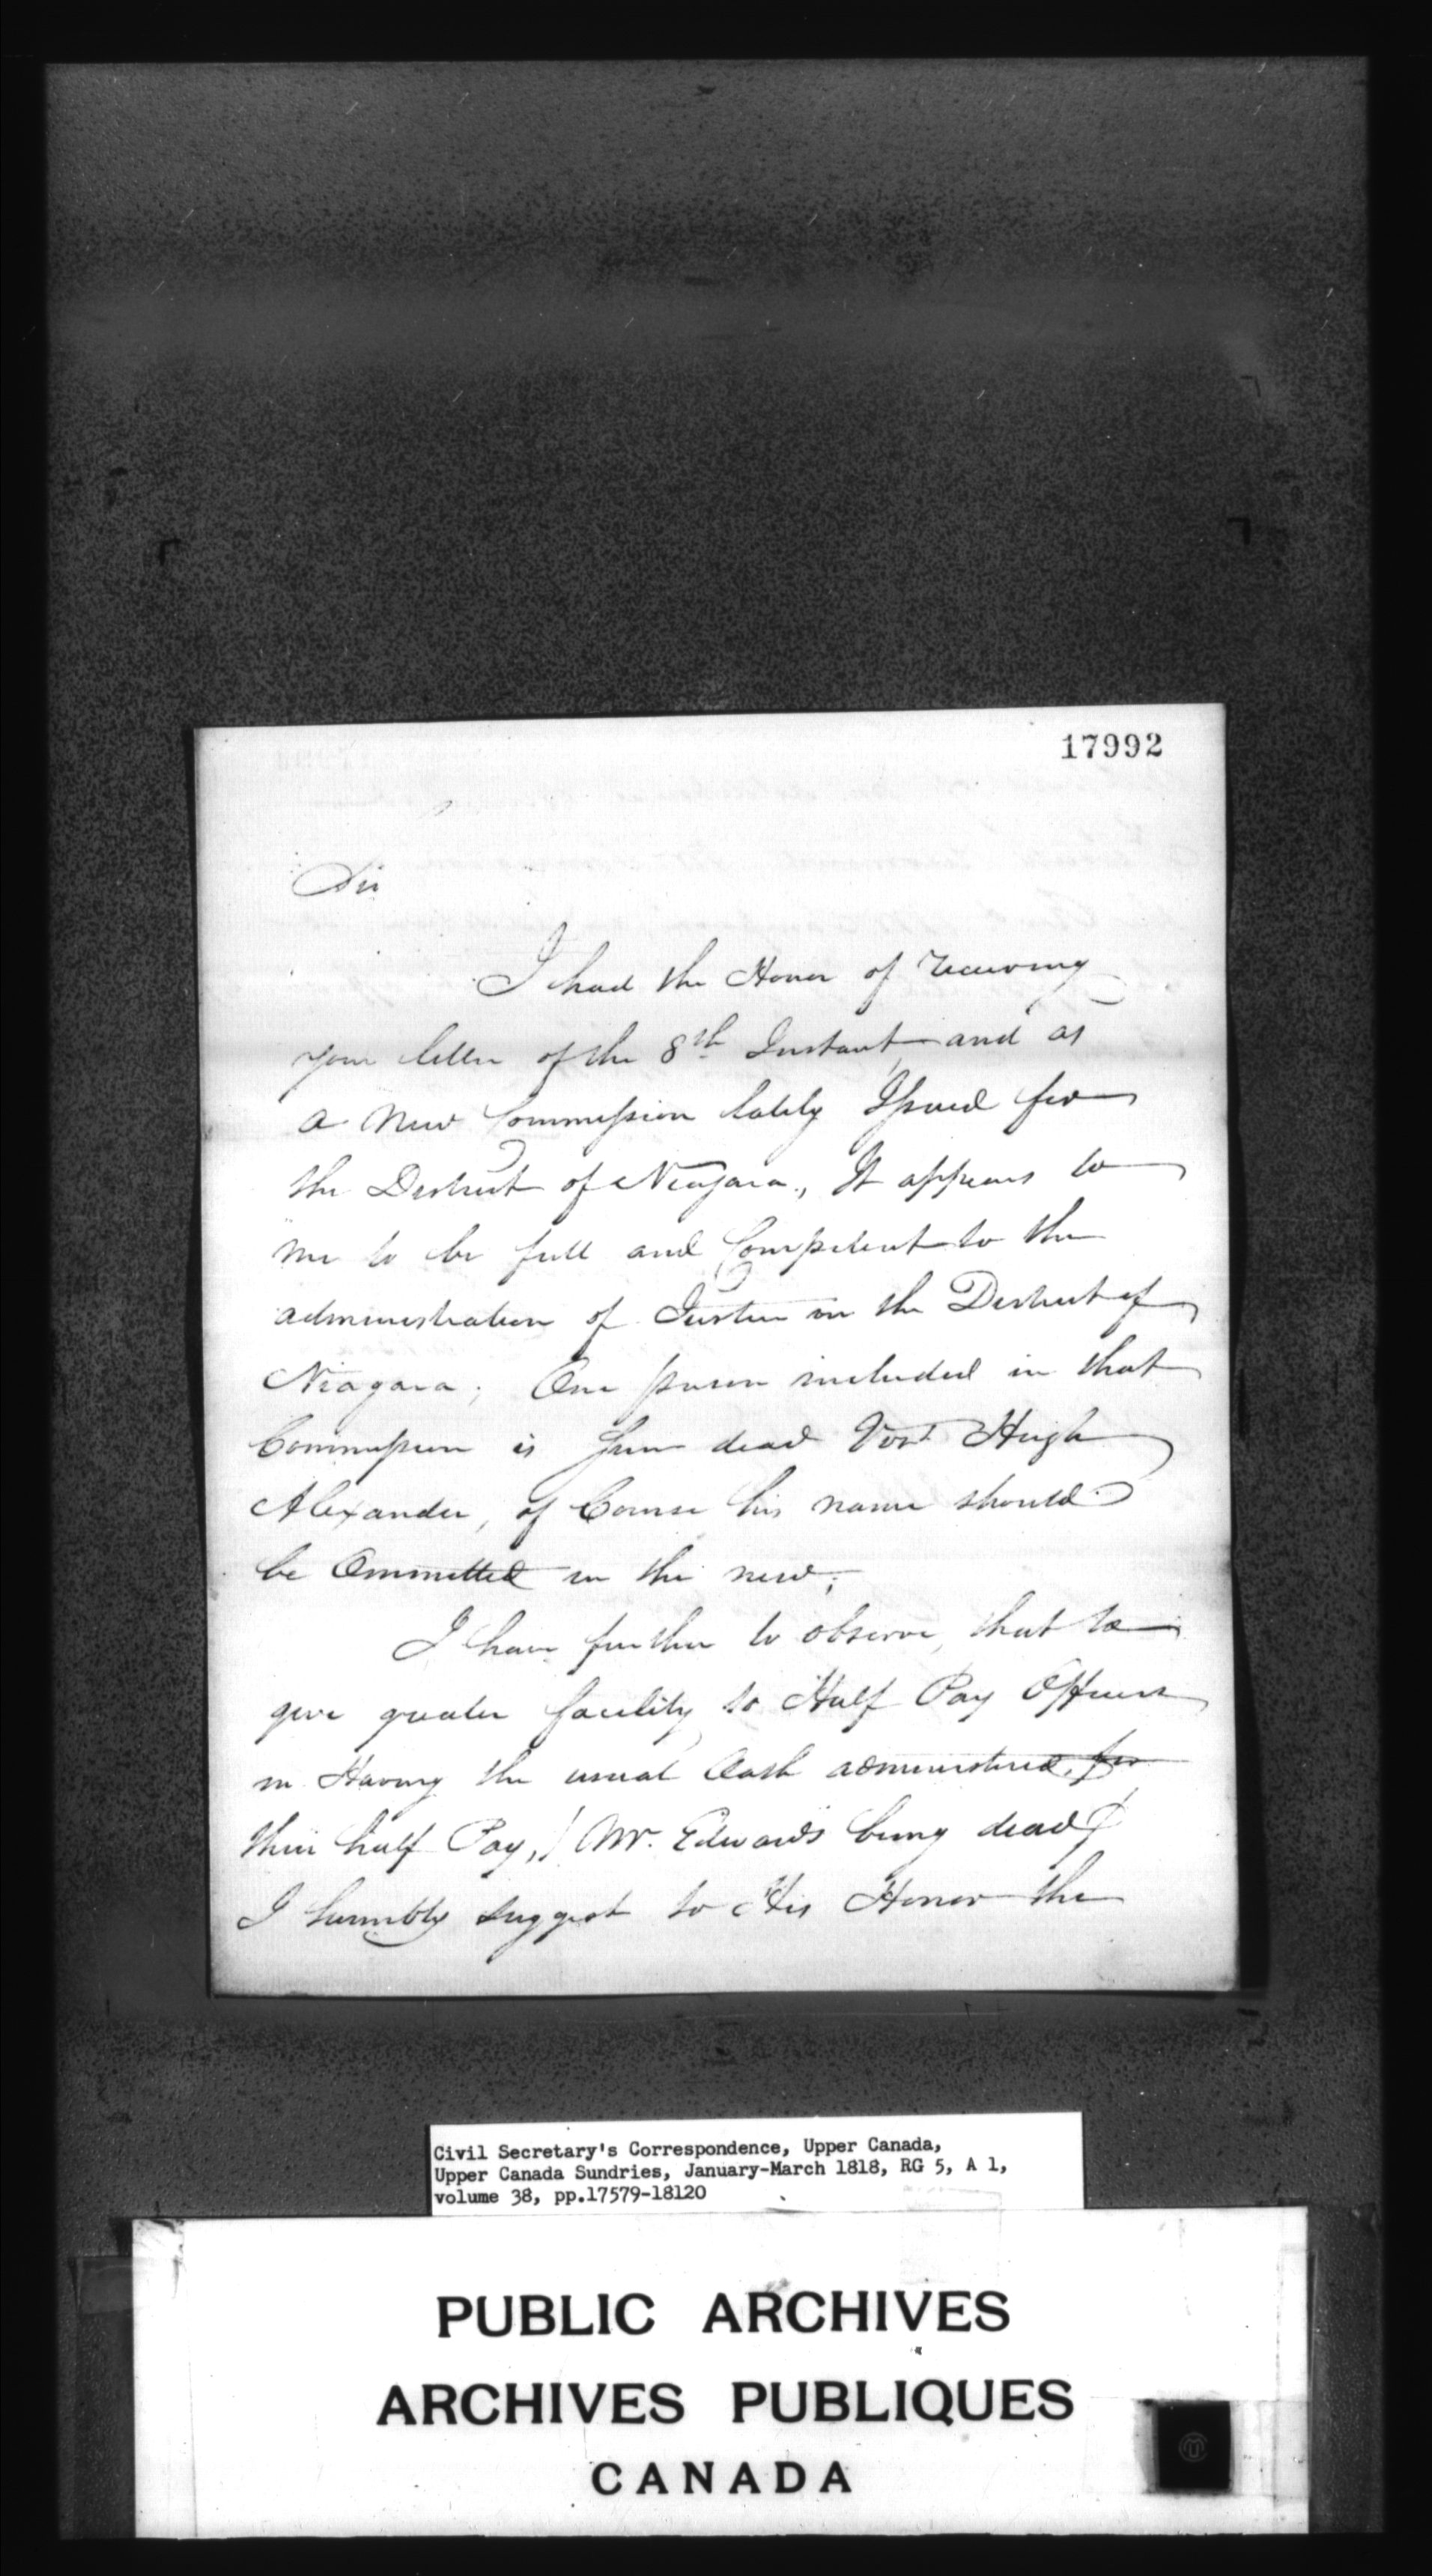 17992
Sir
I had the Honor of receiving
your letter of the 8th Instant, and as
a New Commission lately Issued for
the District of Niagara, It appears to
me to be full and Competent to the
administration of Justice in the District of
Niagara; One person included in that
Commission is since dead Vizt Hugh
Alexander, of Course his name should
be Ommitted in the new;
I have further to observe, that to
give greater facility to Half Pay Officers
in Having the usual Oath administered, for
their half Pay, (Mr. Edwards being dead)
I humbly suggest to His Honor the
Civil Secretary's Correspondence, Upper Canada,
Upper Canada Sundries, January-March 1818, RG 5, A 1,
volume 38, pp.17579-18120
PUBLIC ARCHIVES
ARCHIVES PUBLIQUES
CANADA